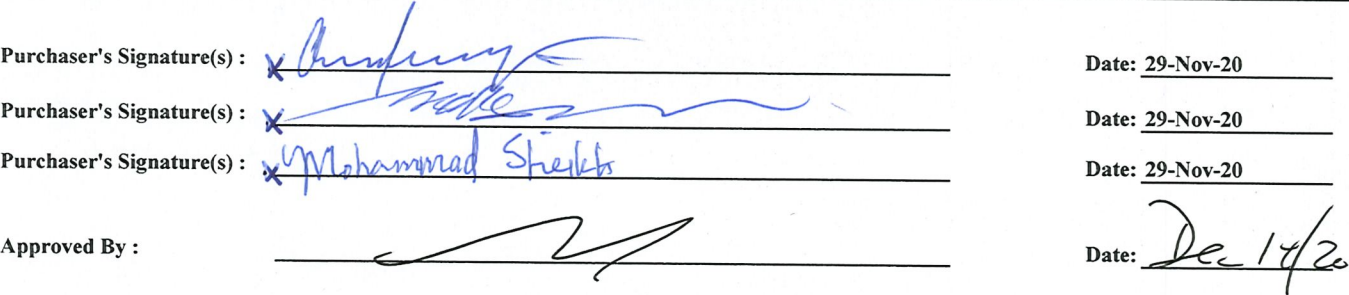 Purchaser's Signature(s) : X Date: 29-Nov-20
Purchaser's Signature(s) : X Date: 29-Nov-20
Purchaser's Signature(s) : X Mohammad Sheikh Date: 29-Nov-20
Approved By : Date: Dec 14/20